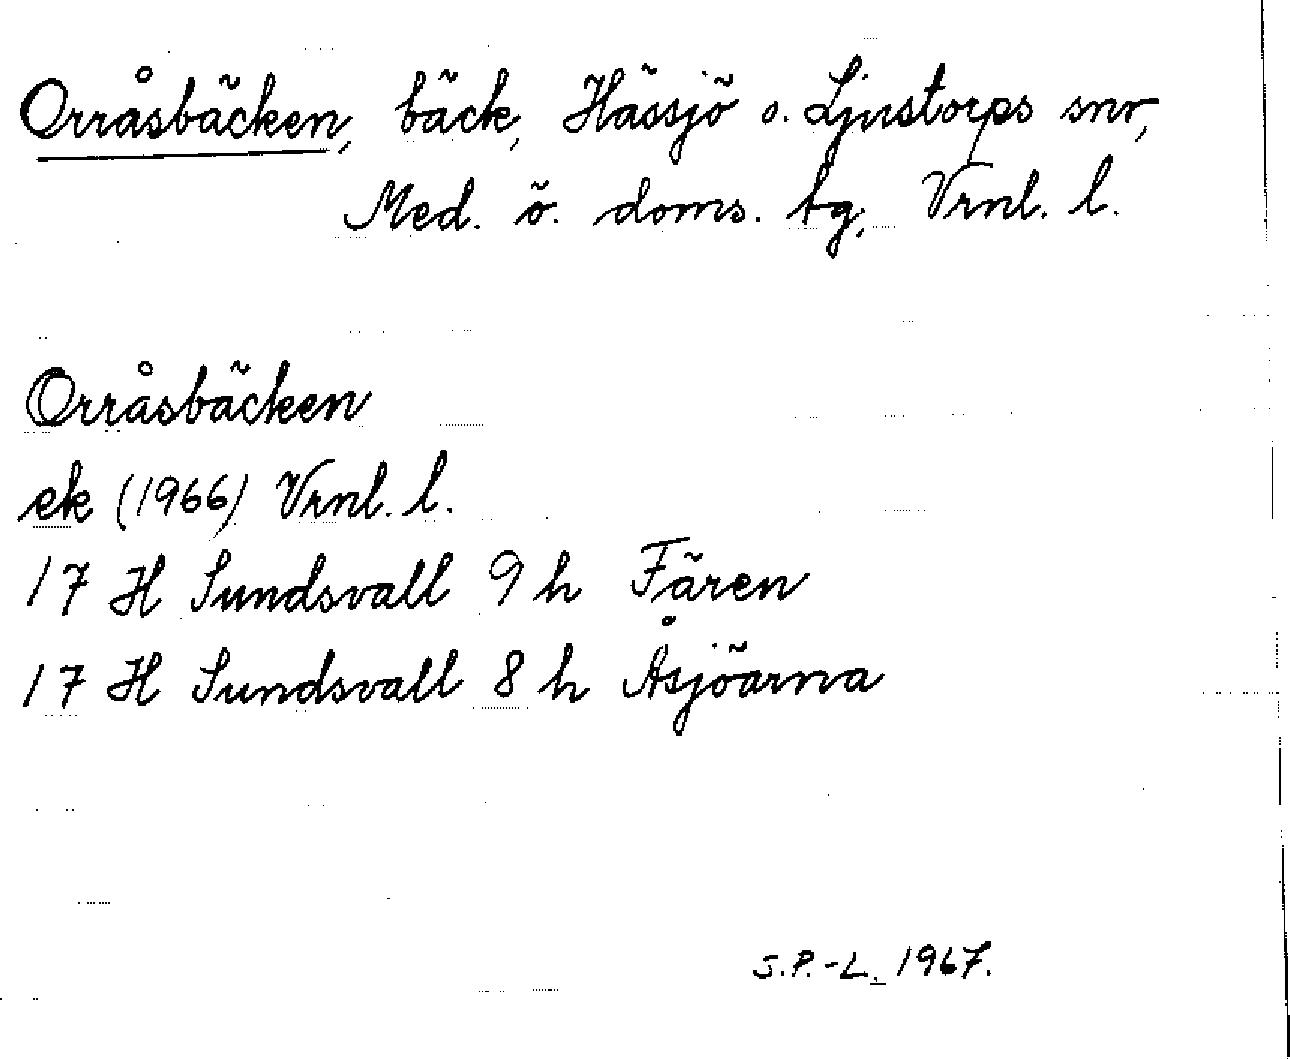 Orråsbäcken, bäck, Hässjö o. Ljustorps snr,
Med. ö. doms. tg, Vrnl. l.
Orråsbäcken
ek (1966) Vrnl. l.
17 H Sundsvall 9 h Fären
17 H Sundsvall 8 h Åsjöarna
S.P.-L. 1967.